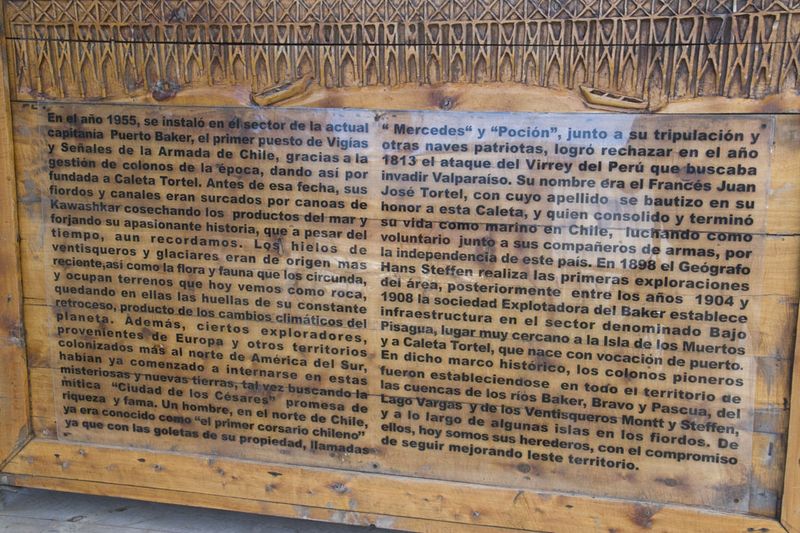 En el año 1955, se instaló en el sector de la actual
capitania Puerto Baker, el primer puesto de Vigías
y Señales de la Armada de Chile, gracias a la
gestión de colonos de la época, dando así por
fundada a Caleta Tortel. Antes de esa fecha, sus
fiordos y canales eran surcados por canoas de
Kawashkar cosechando los productos del mar y
forjando su apasionante historia, que a pesar del
tiempo, aun recordamos. Los hielos de
ventisqueros y glaciares eran de origen mas
reciente,así como la flora y fauna que los circunda,
y ocupan terrenos que hoy vemos como roca,
quedando en ellas las huellas de su constante
retroceso, producto de los cambios climáticos del
planeta. Además, ciertos exploradores,
provenientes de Europa y otros territorios
colonizados más al norte de América del Sur,
habían ya comenzado a internarse en estas
misteriosas y nuevas tierras, tal vez buscando la
mítica "Ciudad de los Césares" promesa de
riqueza y fama. Un hombre, en el norte de Chile,
ya era conocido como "el primer corsario chileno"
ya que con las goletas de su propiedad, llamadas
" Mercedes" y "Poción", junto a su tripulación y
otras naves patriotas, logró rechazar en el año
1813 el ataque del Virrey del Perú que buscaba
invadir Valparaíso. Su nombre éra el Francés Juan
José Tortel, con cuyo apellido se bautizo en su
honor a esta Caleta, y quien consolido y terminó
su vida como marino en Chile, luchando como
voluntario junto a sus compañeros de armas, por
la independencia de este país. En 1898 el Geógrafo
Hans Steffen realiza las primeras exploraciones
del área, posteriormente entre los años 1904 y
1908 la sociedad Explotadora del Baker establece
infraestructura en el sector denominado Bajo
Pisagua, lugar muy cercano a la Isla de los Muertos
y a Caleta Tortel, que nace con vocación de puerto.
En dicho marco histórico, los colonos pioneros
fueron estableciendose en todo el territorio de
las cuencas de los ríos Baker, Bravo y Pascua, del
Lago Vargas y de los Ventisqueros Montt y Steffen,
y a lo largo de algunas islas en los fiordos. De
ellos, hoy somos sus herederos, con el compromiso
de seguir mejorando leste territorio.